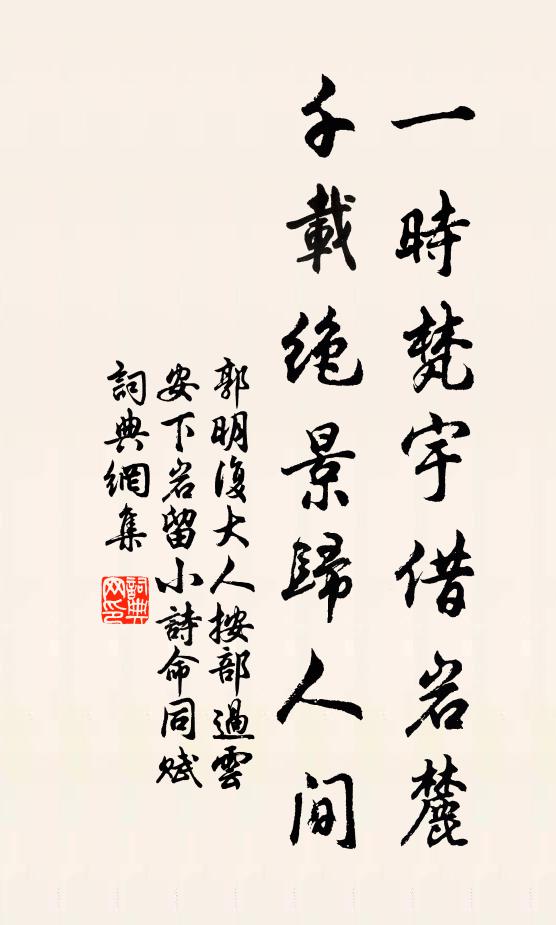 一時梵宇借岩麓
千載绝景歸人间
郭明復大人按部過雲
安下岩留小詩命同賦
詞典網集
詞典網印